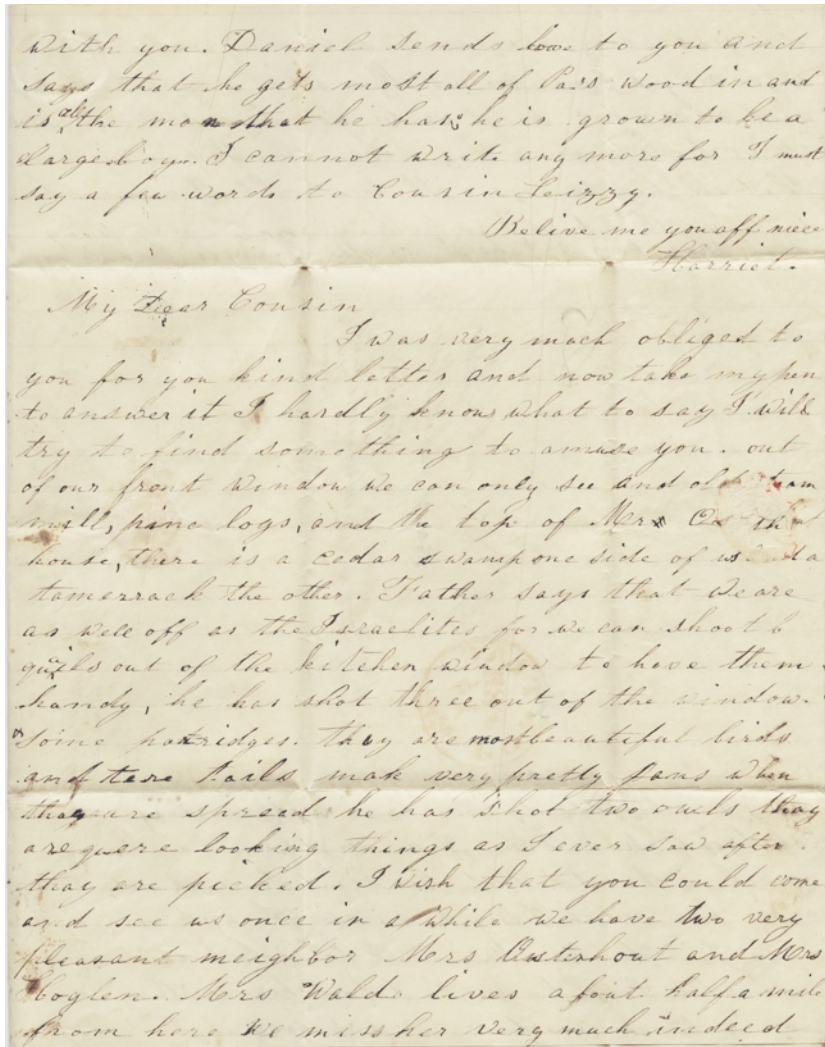 with you. Daniel sends love to you and
says that he gets most all of Pa's wood in and
is all the man that he has, he is grown to be a
large boy. I cannot write any more for I must
say a few words to Cousin Leizzy.
Belive me you aff niece
Harriet.
My Dear Cousin
I was very much obliged to
you for you kind letter and now take my pen
to answer it I hardly know what to say I will
try to find something to amuse you. out
of our front window we can only see and old
mill, pine logs, and the top of Mrs
house, there is a cedar swamp one side of us
tamerrack the other. Father says that we are
as well off as the Israelites for we can shoot
quails out of the kitchen window to have them
handy, he has shot three out of the window.
Some patridges. they are most beautiful birds
and tere tails mak very pretty fans when
thay are spread he has shot two owls thay
are quere looking things as I ever saw after
thay are picked. I wish that you could come
and see us once in a while we have two very
pleasant neighbor Mrs Austerhout and Mrs
Hoglen. Mrs Waldo lives afout half a mile
from here we miss her very much indeed